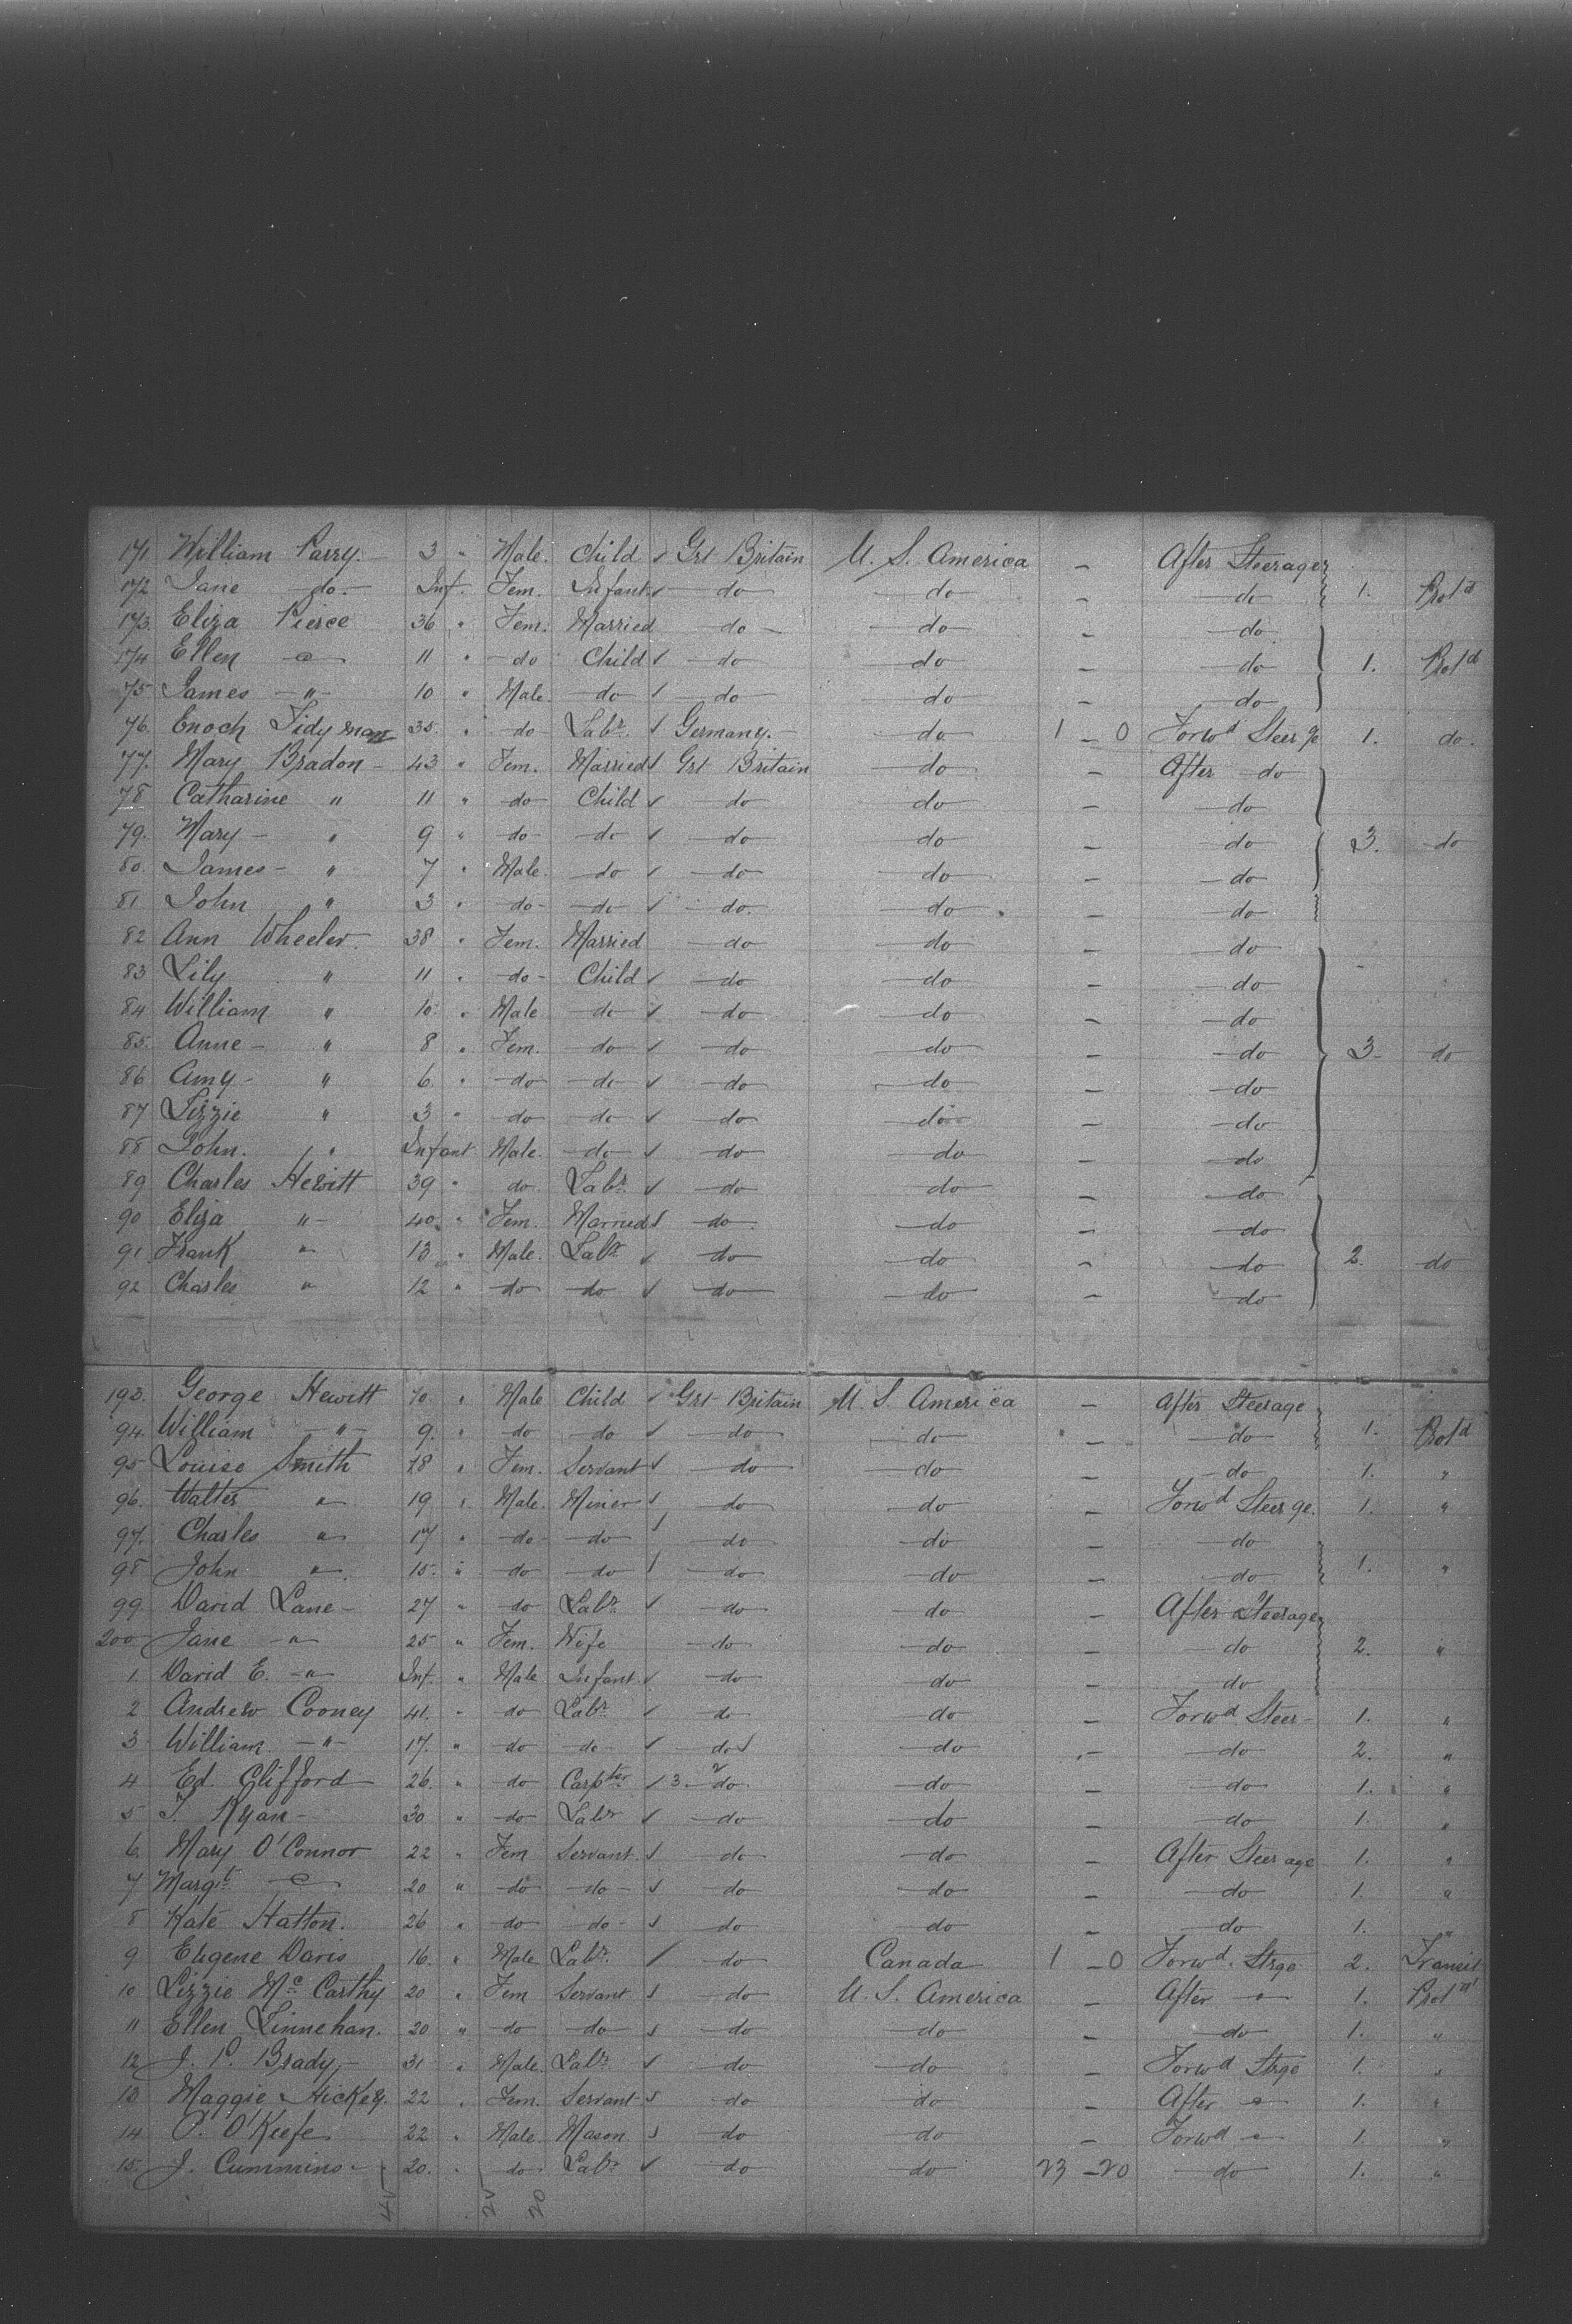 171 William Parry. 3 " Male. Child ✓ Grt Britain U. S. America – After Steerage
172 Jane do. Inf. Fem. Infant ✓ do do – do 1. Prot'd
173. Eliza Pierce 36 " Fem. Married do do – do
174 Ellen " 11 " do Child ✓ do do – do 1. Prot'd
75 James " 10 " Male do ✓ do do – do
76. Enoch Tidyman 35. " do Labr. ✓ Germany. do 1 – 0 Forwd Steerge 1. do.
77. Mary Bradon 43 " Fem. Married ✓ Grt Britain do – After do
78 Catharine " 11 " do Child ✓ do do – do
79. Mary " 9 " do do ✓ do do – do 3. do
80. James " 7 " Male. do ✓ do do – do
81 John " 3 " do do ✓ do. do – do
82 Ann Wheeler. 38 " Fem. Married do do – do
83 Lily " 11 " do Child ✓ do do – do
84 William " 10 " Male do ✓ do do – do
85. Anne " 8 " Fem. do ✓ do do – do 3 do
86 Amy " 6. " do do ✓ do do – do
87 Lizzie " 3 " do do ✓ do do – do
88 John. " Infant Male. do ✓ do do – do
89 Charles Hewitt 39 " do Labr. ✓ do do – do
90 Eliza " 40 " Fem. Married ✓ do do – do
91 Frank " 13 " Male. Labr ✓ do do – do 2. do
92 Charles " 12 " do do ✓ do do – do
193. George Hewitt 10. " Male Child ✓ Grt Britain U. S. America – After Steerage
94. William " 9. " do do ✓ do do – do 1. Prot'd
95 Louise Smith 18 " Fem. Servant ✓ do do – do 1. "
96. Walter " 19 " Male. Miner ✓ do do – Forwd Steerge. 1. "
97. Charles " 17 " do do ✓ do do – do
98 John " 15. " do do ✓ do do – do 1. "
99 David Lane 27 " do Labr. ✓ do do – After Steerage
200 Jane " 25 " Fem. Wife do do – do 2. "
1. David E. " Inf. " Male Infant ✓ do do – do
2 Andrew Cooney 41. " do Labr. ✓ do do – Forwd Steer 1. "
3 William " 17. " do do ✓ do ✓ do – do 2. "
4 Ed. Clifford 26. " do Carpter ✓ 3. do do – do 1. "
5 T. Ryan 30 " do Labr ✓ do do – do 1. "
6. Mary O'Connor 22 " Fem Servant ✓ do do – After Steerage 1. "
7 Margt " 20 " do do ✓ do do – do 1. "
8 Kate Hatton. 26 " do do ✓ do do – do 1. "
9 Eugene Davis 16. " Male Labr. ✓ do Canada 1 – 0 Forwd. Strge 2. Transit
10 Lizzie Mc Carthy 20 " Fem Servant ✓ do U. S. America – After " 1. Prot'd
11 Ellen Linnehan. 20 " do do ✓ do do – do 1. "
12 J. P. Brady, 31 " Male. Labr. ✓ do do – Forwd Strge 1. "
13 Maggie Hickey. 22 " Fem. Servant ✓ do do – After " 1. "
14 P. O'Keefe 22 " Male Mason ✓ do do – Forwd " 1. "
15. J. Cummins 20. " do Labr ✓ do do 23 – 20 do 1. "